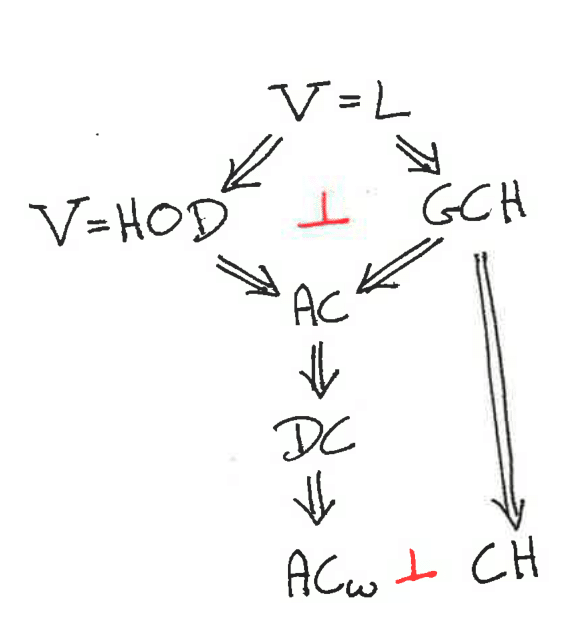 V=L
V=HOD ⊥ GCH
AC
DC
ACω ⊥ CH